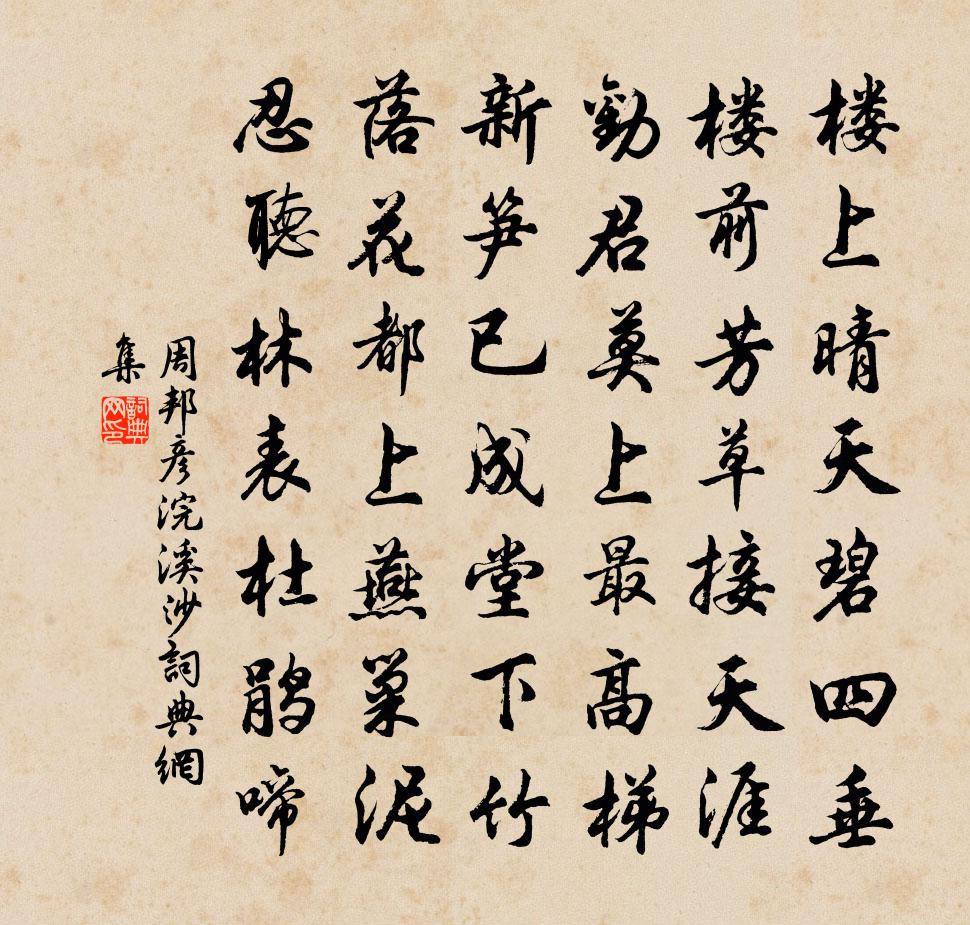 楼上晴天碧四垂
楼前芳草接天涯
勸君莫上最高梯
新笋已成堂下竹
落花都上燕巢泥
忍聽林表杜鹃啼
周邦彦浣溪沙詞典網
集
詞典网印